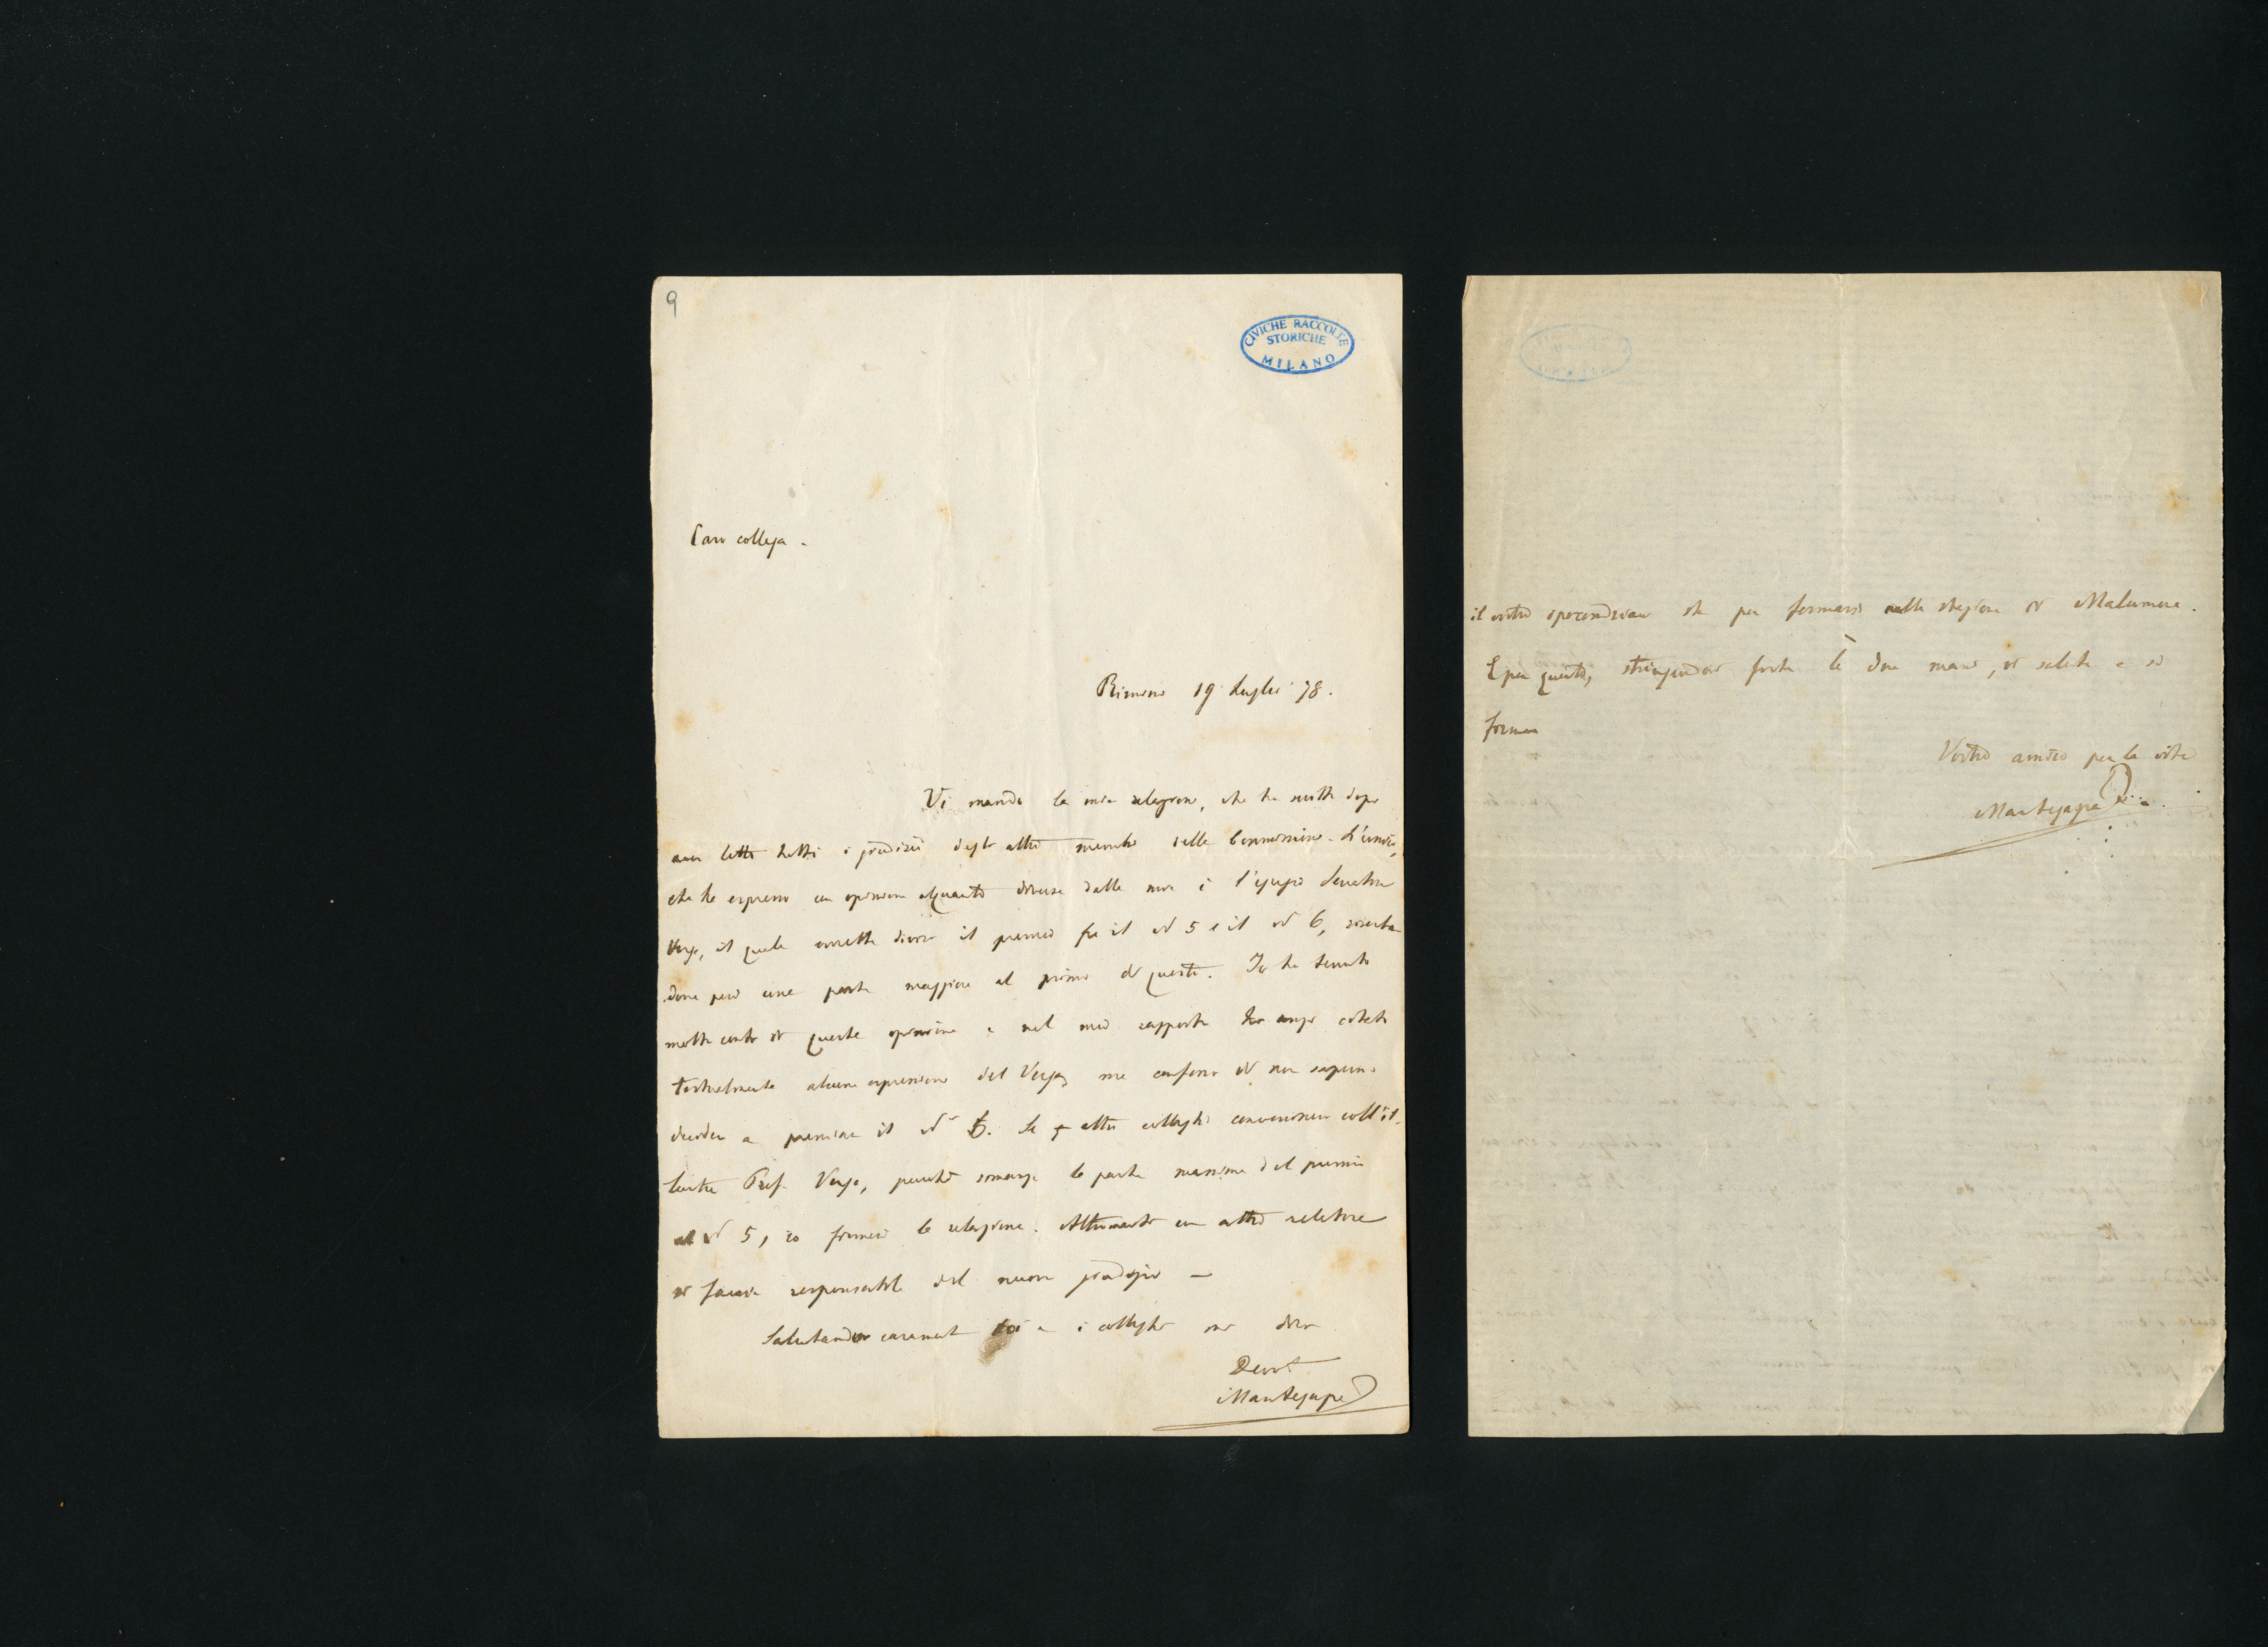 9
CIVICHE RACCOLTE
STORICHE
MILANO
Caro collega.
Rimini 19 Luglio 78.
Vi mando la mia relazione, che ho scritto dopo
aver letto tutti i giudizii degli altri membri della Commissione. L'unico,
che ha espresso un opinione alquanto diversa dalla mia è l'egregio Senatore
Verga, il quale vorrebbe diviso il premio fra il N° 5 e il N° 6, riserban
done però una parte maggiore al primo di questi. Io ho tenuto
molto conto di questa opinione e nel mio rapporto ho anzi citato
testualmente alcune espressioni del Verga, ma confesso di non sapermi
decidere a premiare il N° 6. Se gli altri colleghi convenissero coll'il-
lustre Prof. Verga, purchè rimanga la parte massima del premio
al N° 5, io firmerò la relazione. Altrimenti un altro relatore
si faccia responsabile del nuovo giudizio —
Salutandovi caramente voi e i colleghi mi dico
Devot
Mantegazza
il vostro che per fermarsi nella stazione di
E per questo, stringendovi forte le due mani, vi saluta e si
firma
Vostro amico per la vita
Mantegazza